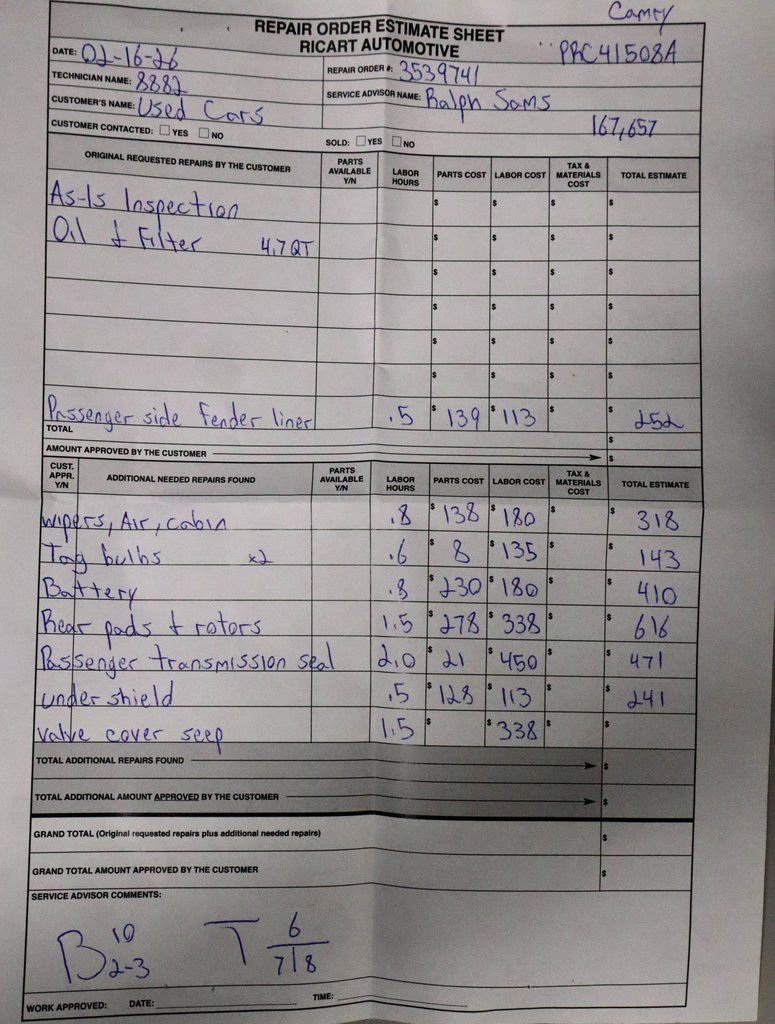 Camry
REPAIR ORDER ESTIMATE SHEET
RICART AUTOMOTIVE
PRC41508A
DATE: 02-16-26
TECHNICIAN NAME: 8882
REPAIR ORDER #: 3539741
CUSTOMER'S NAME: Used Cars
SERVICE ADVISOR NAME: Ralph Sams
167,657
CUSTOMER CONTACTED: ☐ YES ☐ NO SOLD: ☐ YES ☐ NO
ORIGINAL REQUESTED REPAIRS BY THE CUSTOMER PARTS AVAILABLE Y/N LABOR HOURS PARTS COST LABOR COST TAX & MATERIALS COST TOTAL ESTIMATE
As-Is Inspection $ $ $ $
Oil & Filter 4.7 QT $ $ $ $
$ $ $ $
$ $ $ $
$ $ $ $
$ $ $ $
Passenger side fender liner .5 $ 139 $ 113 $ $ 252
TOTAL $
AMOUNT APPROVED BY THE CUSTOMER $
CUST. APPR. Y/N ADDITIONAL NEEDED REPAIRS FOUND PARTS AVAILABLE Y/N LABOR HOURS PARTS COST LABOR COST TAX & MATERIALS COST TOTAL ESTIMATE
wipers, Air, cabin .8 $ 138 $ 180 $ $ 318
Tag bulbs x2 .6 $ 8 $ 135 $ $ 143
Battery .8 $ 230 $ 180 $ $ 410
Rear pads & rotors 1.5 $ 278 $ 338 $ $ 616
Passenger transmission seal 2.0 $ 21 $ 450 $ $ 471
under shield .5 $ 128 $ 113 $ $ 241
valve cover seep 1.5 $ $ 338 $ $
TOTAL ADDITIONAL REPAIRS FOUND $
TOTAL ADDITIONAL AMOUNT APPROVED BY THE CUSTOMER $
GRAND TOTAL (Original requested repairs plus additional needed repairs) $
GRAND TOTAL AMOUNT APPROVED BY THE CUSTOMER $
SERVICE ADVISOR COMMENTS:
B 10 2-3 T 6 7|8
WORK APPROVED: DATE: TIME: